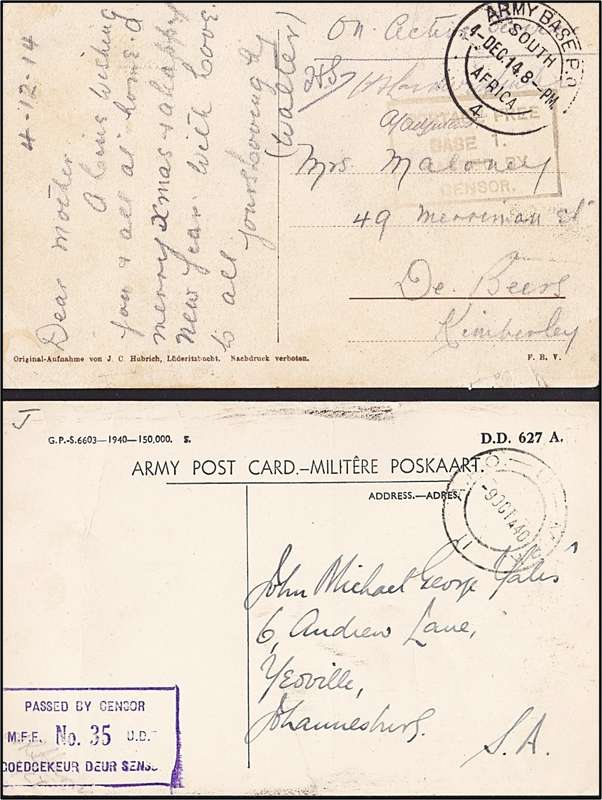 4-12-14
Dear Mother
A line wishing
you & all at home a
merry Xmas & a happy
New Year with love
to all
Yours loving
(Walter)
On Active
ARMY BASE P.O.
SOUTH
4-DEC.14.8-PM
AFRICA
4
FREE
BASE 1.
BY
CENSOR.
Mrs. Maloney
49 Merriman St
De Beers
Kimberley
Original-Aufnahme von J. C. Hubrich, Lüderitzbucht. Nachdruck verboten.
F. B. V.
J
G.P.-S.6603—1940—150,000. S.
D.D. 627 A.
ARMY POST CARD.–MILITÊRE POSKAART.
ADDRESS.—ADRES.
-9 OCT 40
John Michael George Yates
6, Andrew Lane,
Yeoville,
Johannesburg.
S.A.
PASSED BY CENSOR
M.F.F. No. 35 U.D.
GOEDGEKEUR DEUR SENS